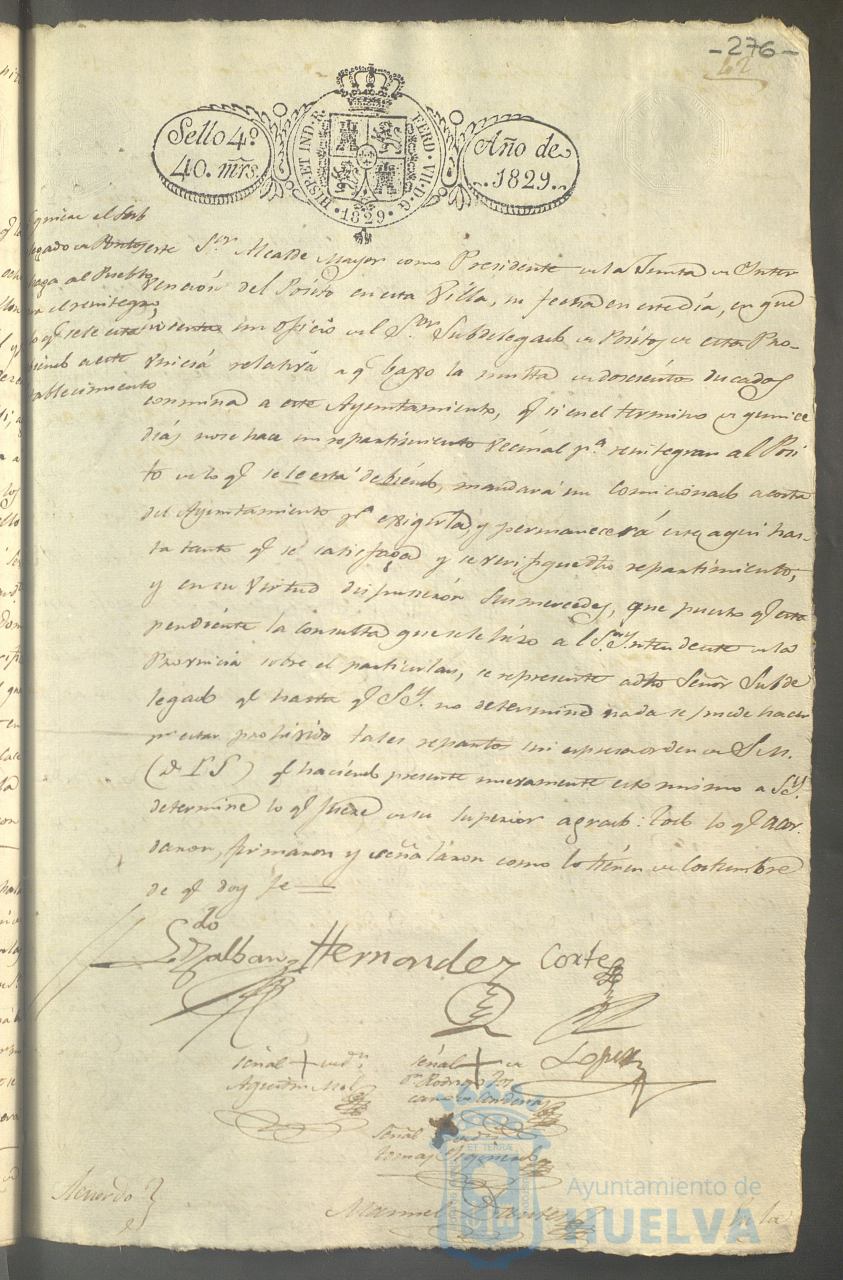 -276-
42
Sello 4º
40. mrs.
HISP. ET IND. R.
FERD. VII. D. G.
1829
Año de
1829.
legado de Positos
haga al Pueblo
en el reintegro
lo q.e se le esta
debiendo a este
establecimiento
este S.or Alcalde Mayor como Presidente de la Junta de Inter
vencion del Posito en esta Villa, su fecha en este dia, en que
inserta un oficio del S.or Subdelegado de Positos de esta Pro-
vincia relativa a q.e bajo la multa de doscientos ducados
conmina a este Ayuntamiento, q.e si en el termino de quince
dias no se hace un repartimiento vecinal p.a reintegrar al Posi
to de lo q.e se le está debiendo, mandará un Comicionado a costa
del Ayuntamiento p.a exigirla y permanecerá este aqui has-
ta tanto q.e se satisfaga y se verifique dho repartimiento;
y en su virtud dispusieron sus mercedes, que puesto q.e esta
pendiente la consulta que se le hizo al S.or Yntendente de la
Provincia sobre el particular, se represente a dho Señor Subde
legado q.e hasta q.e S.Y. no determine nada se puede hacer
p.r estar prohivido tales repartos sin expresa orden de S.M.
(D. L. G.) q.e haciendo presente nuevamente esto mismo a S.Y.
determine lo q.e fuere de su superior agrado: Todo lo q.e acor
daron, firmaron y señalaron como lo tienen de costumbre
de q.e doy fe
Hernandez Corte
señal + de d.n
Agustin
señal + de
d.n Rodrigo
Lopez
señal de
Tomas
Manuel
Acuerdo
En la
Ayuntamiento de
HUELVA